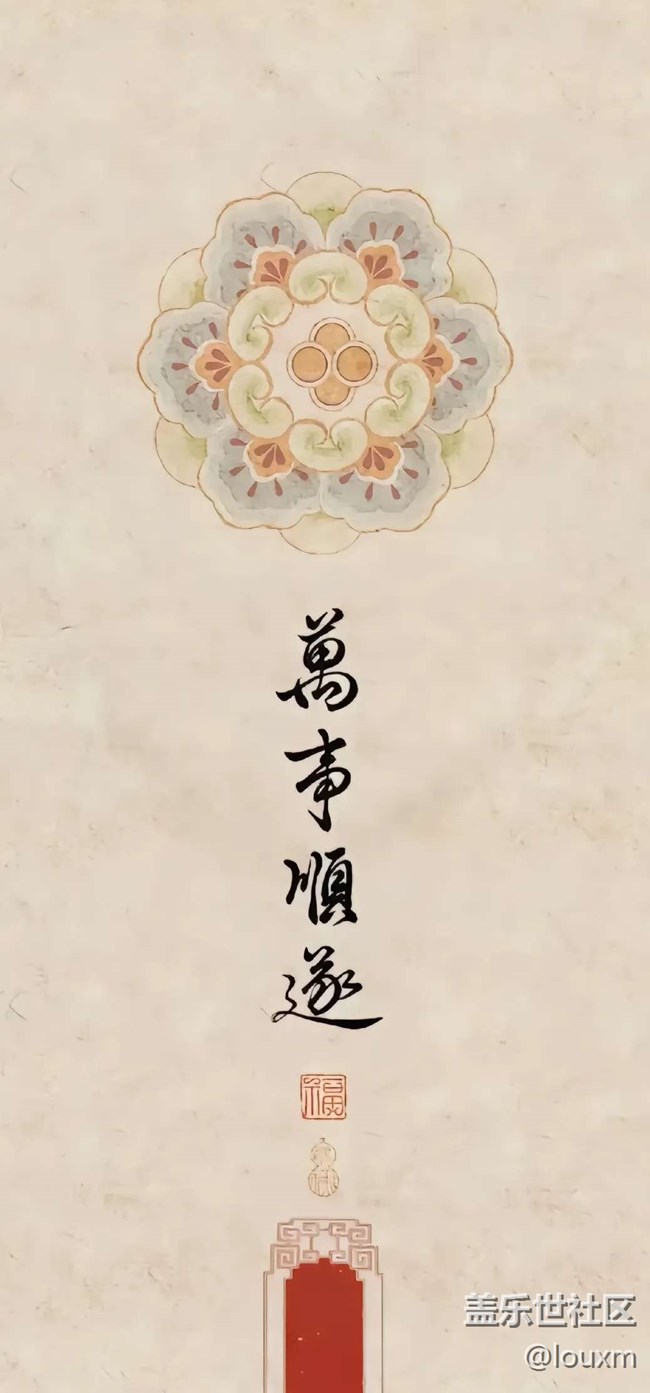 萬事順遂
福
盖乐世社区
@louxm